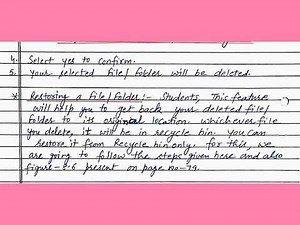 4. Select yes to confirm.
5. Your selected file/ folder will be deleted.
* Restoring a file/folder :- Students, This feature
will help you to get back your deleted file/
folder to its original location. whichever file
you delete, it will be in recycle bin. You can
restore it from Recycle bin only. for this, we
are going to follow the steps given here and also
figure-5.6 present on page no-79.